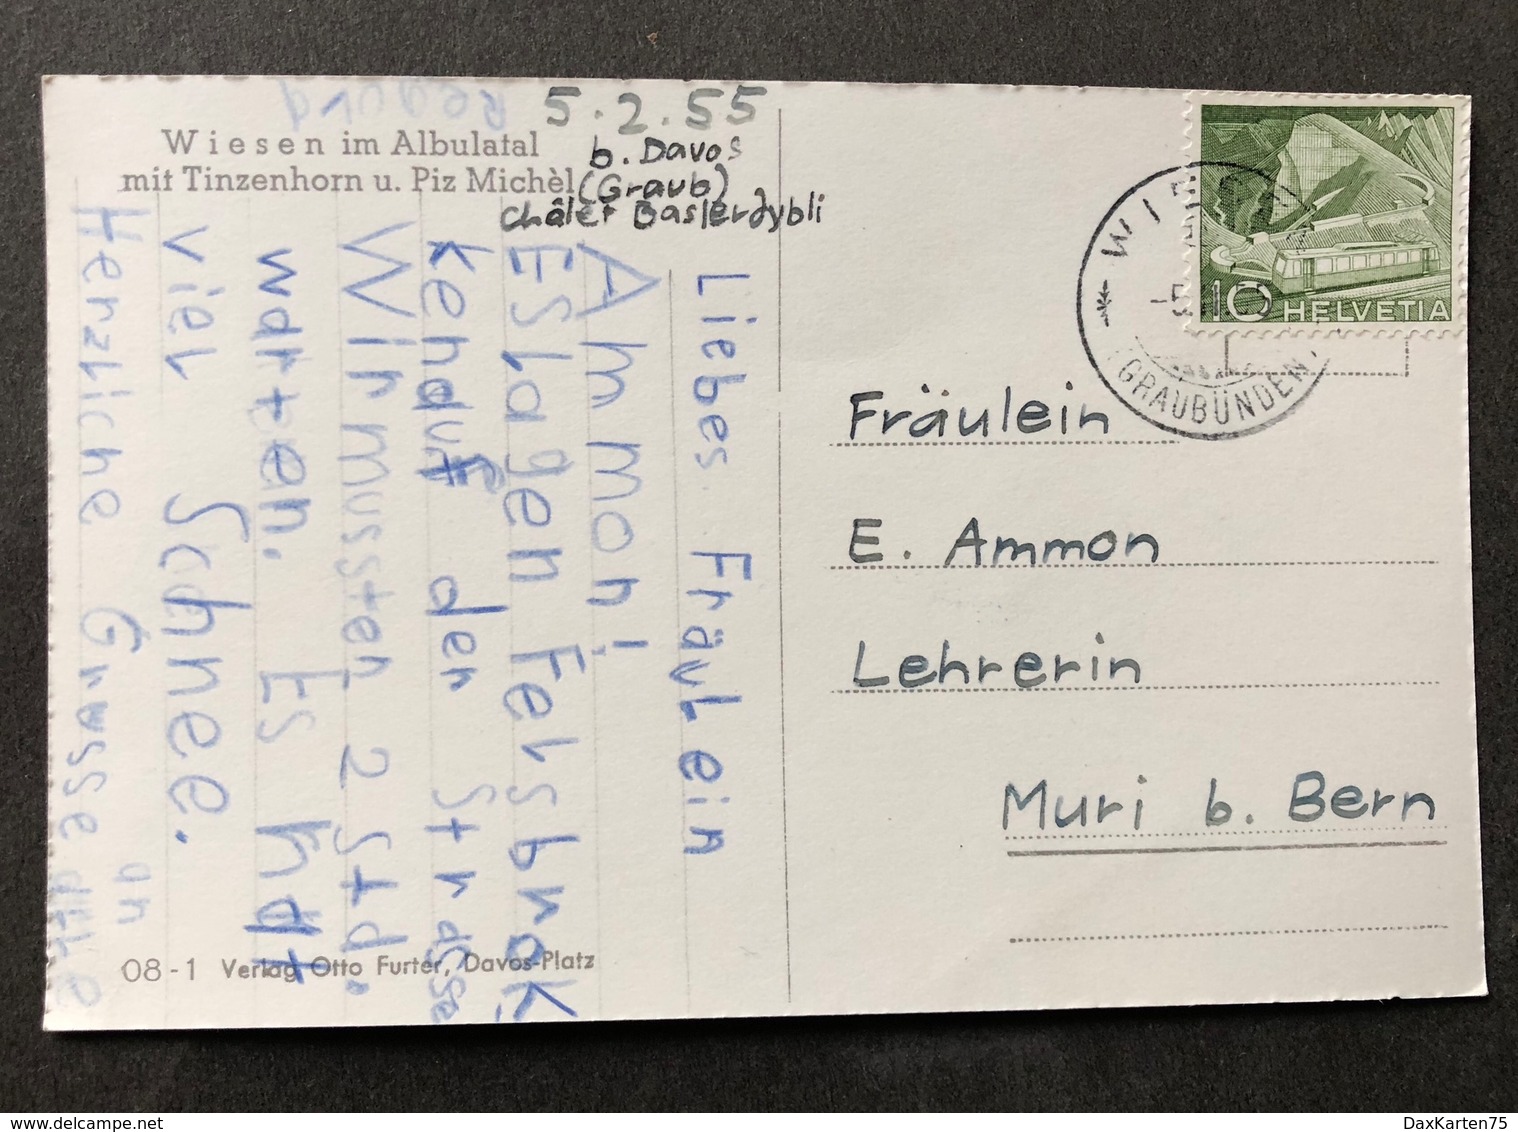 5.2.55
Wiesen im Albulatal
mit Tinzenhorn u. Piz Michèl
b. Davos
(Graub)
Châlet Baslerdybli
Liebes Fräulein
Ammon!
Es lagen Felsbrok
kenauf der Strasse
Wir mussten 2 Std.
warten. Es hat
viel Schnee.
Herzliche Grüsse an
alle
Regula
08-1 Verlag Otto Furter, Davos-Platz
10 HELVETIA
WIESEN
(GRAUBÜNDEN)
Fräulein
E. Ammon
Lehrerin
Muri b. Bern
DaxKarten75
delcampe.net